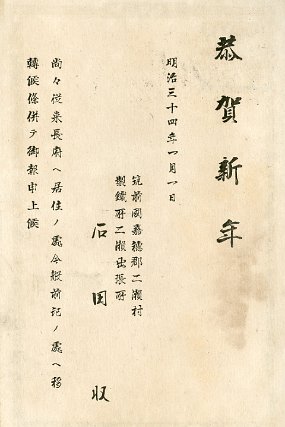 恭賀新年
明治三十四年一月一日
筑前国嘉穂郡二瀬村
製鐵所二瀬出張所
石田収
尚々従来長府ヘ居住ノ處今般前記ノ處ヘ移
轉候條併テ御報申上候